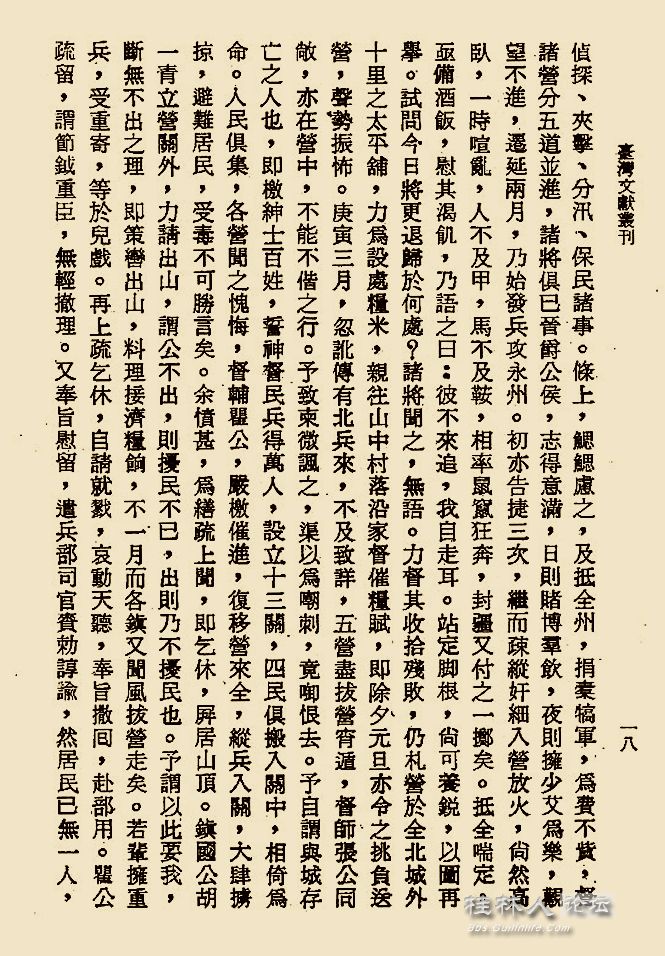 臺灣文獻叢刊
一八
偵探、夾擊、分汛、保民諸事。條上，鰓鰓慮之，及抵全州，捐橐犒軍，爲費不貲，督
諸營分五道並進，諸將俱已晉爵公侯，志得意滿，日則賭博羣飲，夜則擁少艾爲樂，觀
望不進，遷延兩月，乃始發兵攻永州。初亦告捷三次，繼而疎縱奸細入營放火，尙然高
臥，一時喧亂，人不及甲，馬不及鞍，相率鼠竄狂奔，封疆又付之一擲矣。抵全喘定，
亟備酒飯，慰其渴飢，乃語之曰：彼不來追，我自走耳。站定脚根，尙可養銳，以圖再
擧。試問今日將更退歸於何處？諸將聞之，無語。力督其收拾殘敗，仍札營於全北城外
十里之太平舖，力爲設處糧米，親往山中村落沿家督催糧賦，即除夕元旦亦令之挑負送
營，聲勢振怖。庚寅三月，忽訛傳有北兵來，不及致詳，五營盡拔營宵遁，督師張公同
敵，亦在營中，不能不偕之行。予致柬微諷之，渠以爲嘲刺，竟啣恨去。予自謂與城存
亡之人也，即檄紳士百姓，誓神督民兵得萬人，設立十三關，四民俱搬入關中，相倚爲
命。人民俱集，各營聞之愧悔，督輔瞿公，嚴檄催進，復移營來全，縱兵入關，大肆擄
掠，避難居民，受毒不可勝言矣。余憤甚，爲繕疏上聞，即乞休，屛居山頂。鎭國公胡
一青立營關外，力請出山，謂公不出，則擾民不已，出則乃不擾民也。予謂以此要我，
斷無不出之理，即策轡出山，料理接濟糧餉，不一月而各鎭又聞風拔營走矣。若輩擁重
兵，受重寄，等於兒戲。再上疏乞休，自請就戮，哀動天聽，奉旨撤回，赴部用。瞿公
疏留，謂節鉞重臣，無輕撤理。又奉旨慰留，遣兵部司官賷勅諄諭，然居民已無一人，
桂林人论坛
bbs.Guilinlife.com